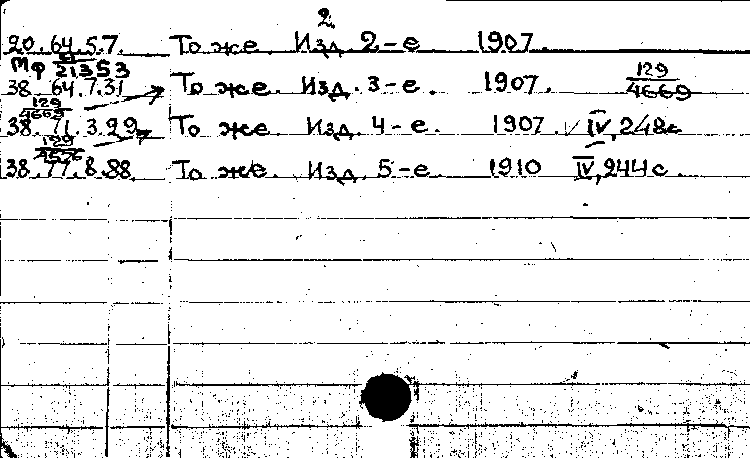 2
20.64.5.7. То же. Изд. 2-е 1907.
Мф 21353
38.64.7.31 То же. Изд. 3-е. 1907. 129/4669
129/4669
38.71.3.99 То же. Изд. 4-е. 1907. IV, 248с
129
38.77.8.88. То же. Изд. 5-е. 1910 IV, 244с.